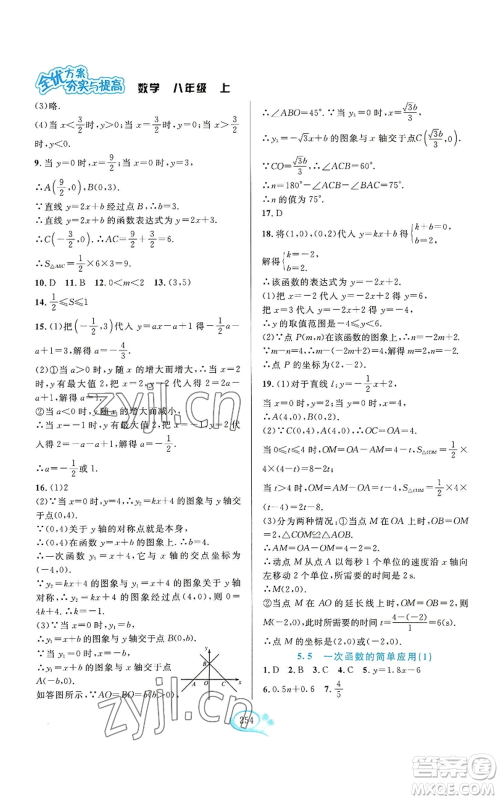 全优方案
夯实与提高
数学 八年级 上
(3)略.
(4)当 x<3/2 时,y>0;当 x>3/2 时,y<0.
9. 当 y=0 时,x=9/2;当 x=0 时,y=3.
∴A(9/2,0),B(0,3).
∵直线 y=2x+b 经过点 B,∴b=3.
∴直线的函数表达式为 y=2x+3.
∴C(-3/2,0).∴AC=9/2+3/2=6.
∴S△ABC=1/2×6×3=9.
10. D 11. B 12. 0<m<2 13. (3,5)
14. 1/2≤S≤1
15. (1)把(-1/2,3)代入 y=ax-a+1 得 -1/2
a-a+1=3,解得 a=-4/3.
(2)①当 a>0 时,y 随 x 的增大而增大,当 x=2
时,y 有最大值 2,把 x=2,y=2 代入函数表达
式得 2=2a-a+1,解得 a=1;
②当 a<0 时,y 随 x 的增大而减小,
当 x=-1 时,y 有最大值 2,把 x=-1,y=2 代入
函数表达式得 2=-a-a+1,解得 a=-1/2.
∴a=-1/2 或 1.
16. (1)2
(2)∵当 x=0 时,y=4,∴y=x+4 的图象与 y 轴交
于点(0,4).
∵(0,4)关于 y 轴的对称点为本身,
∴(0,4)在函数 y=kx+4 的图象上.
∴一次函数 y=x+4 的图象与 x 轴的交点坐标为
(-4,0),
∴y₂=kx+4 的图象经过点(4,0).
∴0=4k+4.∴k=-1.
(3)∵y₁=x+b 的图象与 y 轴交于点 B(0,b),与
x 轴交于点 A(-b,0),
如答图所示,∵AO=BO=b(b>0),
x
∴∠ABO=45°.∵B(0,b),
∴y₃=-√3x+b 的图象与 x 轴交于点 C(√3b/3,0).
∴OC=√3b/3.∴∠ACB=60°.
∴n=180°-∠CAB-∠ACB=75°.
∴n 的值为 75°.
17. D
18. 将(1,0),(0,2)代入 y=kx+b 得{k+b=0, b=2,
解得{k=-2, b=2.
∴该函数的表达式为 y=-2x+2.
(1)把 x=-2 代入 y=-2x+2 得 y=6,
把 x=3 代入 y=-2x+2 得 y=-4,
∴y 的取值范围是 -4≤y<6.
(2)∵点 P(m,n)在该函数的图象上,∴n=-2m+2.
∵m-n=4,∴m-(-2m+2)=4,解得 m=2,n=-2,
∴点 P 的坐标为(2,-2).
19. (1)对于直线 l:y=-1/2x+2,
当 x=0 时,y=2;当 y=0 时,x=4,
∴A(4,0),B(0,2).
(2)∵C(0,4),A(4,0),∴OC=OA=4.
当 0≤t≤4 时,OM=OA-AM=4-t,S△COM=1/2
×4×(4-t)=8-2t;
当 t>4 时,OM=AM-OA=t-4,S△COM=1/2×4×
(t-4)=2t-8.
(3)分为两种情况:①当点 M 在 OA 上时,OB=OM
=2,△COM≌△AOB.
∴AM=OA-OM=4-2=2.
∴动点 M 从点 A 以每秒 1 个单位的速度沿 x 轴向
左移动 2 个单位,所需要的时间是 2s.
∴M(2,0).
②当点 M 在 AO 的延长线上时,OM=OB=2,则
M(-2,0),此时所需要的时间 t=4-(-2)/1=6(s).
∴点 M 的坐标是(2,0)或(-2,0).
5.5 一次函数的简单应用(1)
1. D 2. B 3. C 4. C 5. y=1.8x-6
6. 0.5n+0.6 7. 4/5
254
zyjl.cn
zyjl.cn